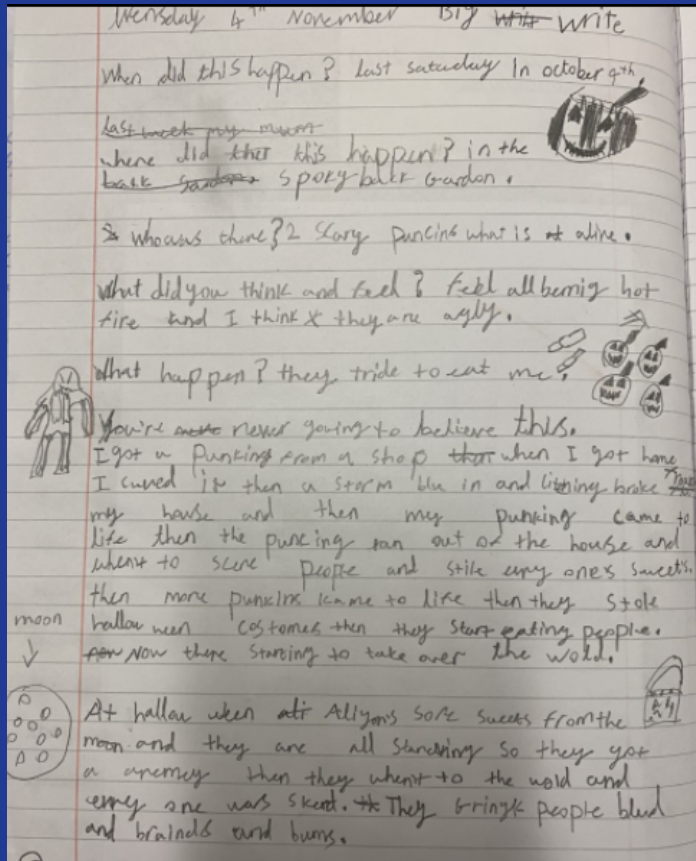 Wensday 4th November Big write
When did this happen? last saturday in october 9th.
Last week my mum
where did this happen? in the
back garden spoky bakk Gardon.
who was there? 2 Scary puncins what is alive.
What did you think and feel? feel all bernig hot
fire and I think they are agly.
What happen? they tride to eat me!
You're never gowing to believe this.
I got a Punking from a shop when I got home
I curved it then a storm blu in and litning brake
my house and then my punking came to
life then the puncing ran out of the house and
whent to scere peopfe and stile evry one's sweets.
then more punkins came to life then they stole
hallow ween costomes then they start eating people.
Now there starting to take over the wold.
moon
At hallow ween Aliyons sore sweets from the
moon and they are all starving so they got
a anemey then they whent to the wold and
evrey one was skerd. They bringk people blud
and brainds and bums.